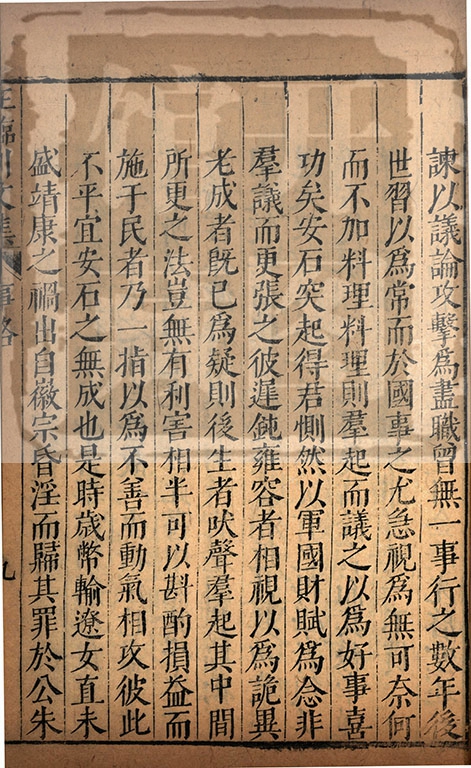 諫以議論攻擊爲盡職曾無一事行之數年後
世習以爲常而於國事之尤急視爲無可奈何
而不加料理料理則羣起而議之以爲好事喜
功矣安石突起得君惻然以軍國財賦爲念非
羣議而更張之彼遲鈍雍容者相視以爲詭異
老成者旣已爲疑則後生者吠聲羣起其中間
所更之法豈無有利害相半可以斟酌損益而
施于民者乃一指以爲不善而動氣相攻彼此
不平宜安石之無成也是時歲幣輸遼女直未
盛靖康之禍出自徽宗昏淫而歸其罪於公朱
王臨川文集 事略 九